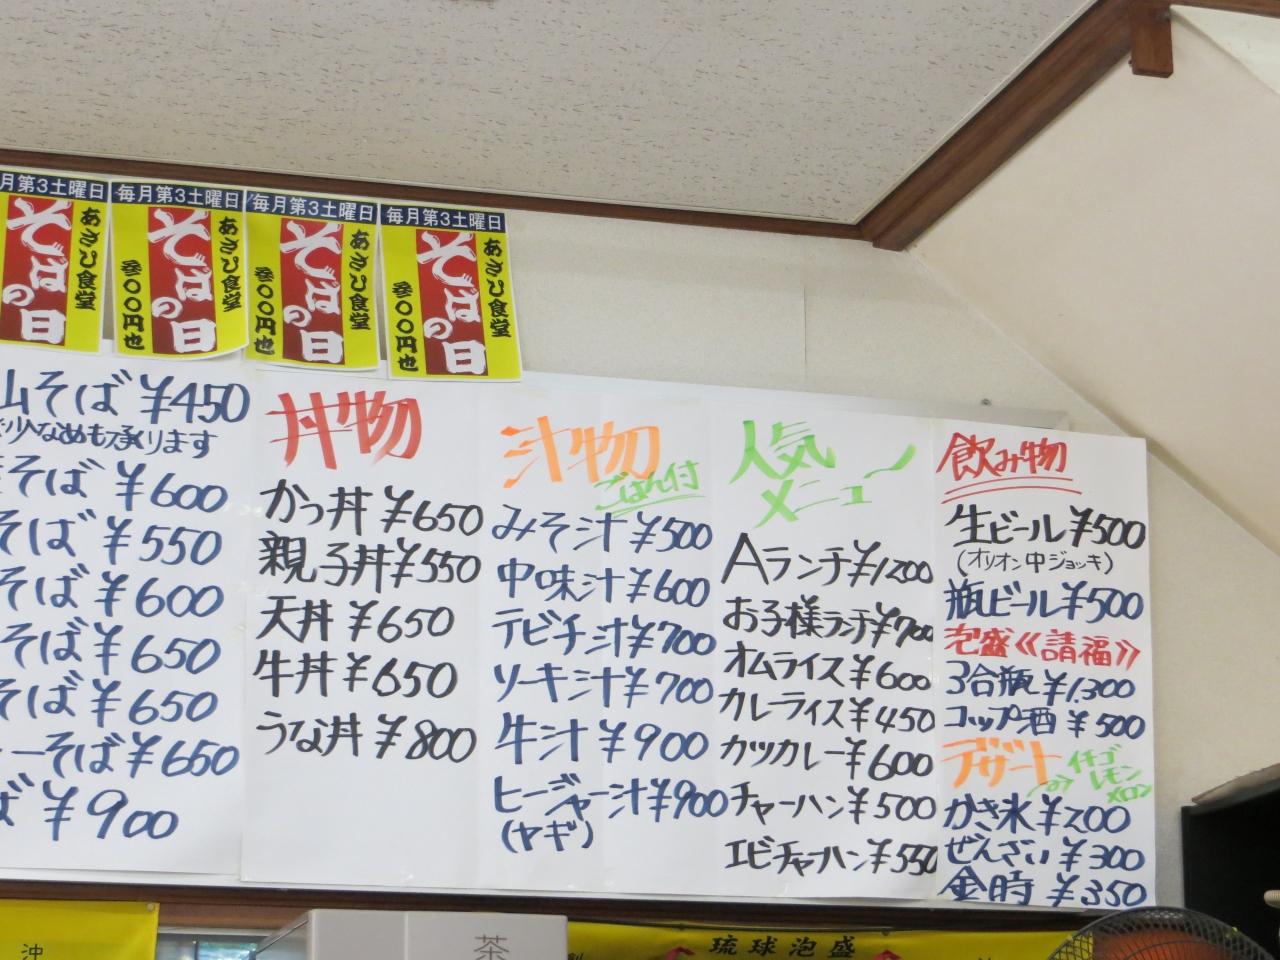 月第3土曜日
あさひ食堂
そばの日
毎月第3土曜日
あさひ食堂
そばの日
参〇〇円也
毎月第3土曜日
あさひ食堂
そばの日
参〇〇円也
毎月第3土曜日
あさひ食堂
そばの日
参〇〇円也
山そば ¥450
少なめも承ります
そば ¥600
そば ¥550
そば ¥600
そば ¥650
そば ¥650
ーそば ¥650
ば ¥900
丼物
かつ丼 ¥650
親子丼 ¥550
天丼 ¥650
牛丼 ¥650
うな丼 ¥800
汁物
ごはん付
みそ汁 ¥500
中味汁 ¥600
テビチ汁 ¥700
ソーキ汁 ¥700
牛汁 ¥900
ヒージャー汁 ¥900
(ヤギ)
人気
メニュー
Aランチ ¥1200
お子様ランチ ¥700
オムライス ¥600
カレーライス ¥450
カツカレー ¥600
チャーハン ¥500
エビチャーハン ¥550
飲み物
生ビール ¥500
(オリオン中ジョッキ)
瓶ビール ¥500
泡盛《請福》
3合瓶 ¥1,300
コップ酒 ¥500
デザート
イチゴ
レモン
メロン
かき氷 ¥200
ぜんざい ¥300
金時 ¥350
沖
茶
琉球泡盛